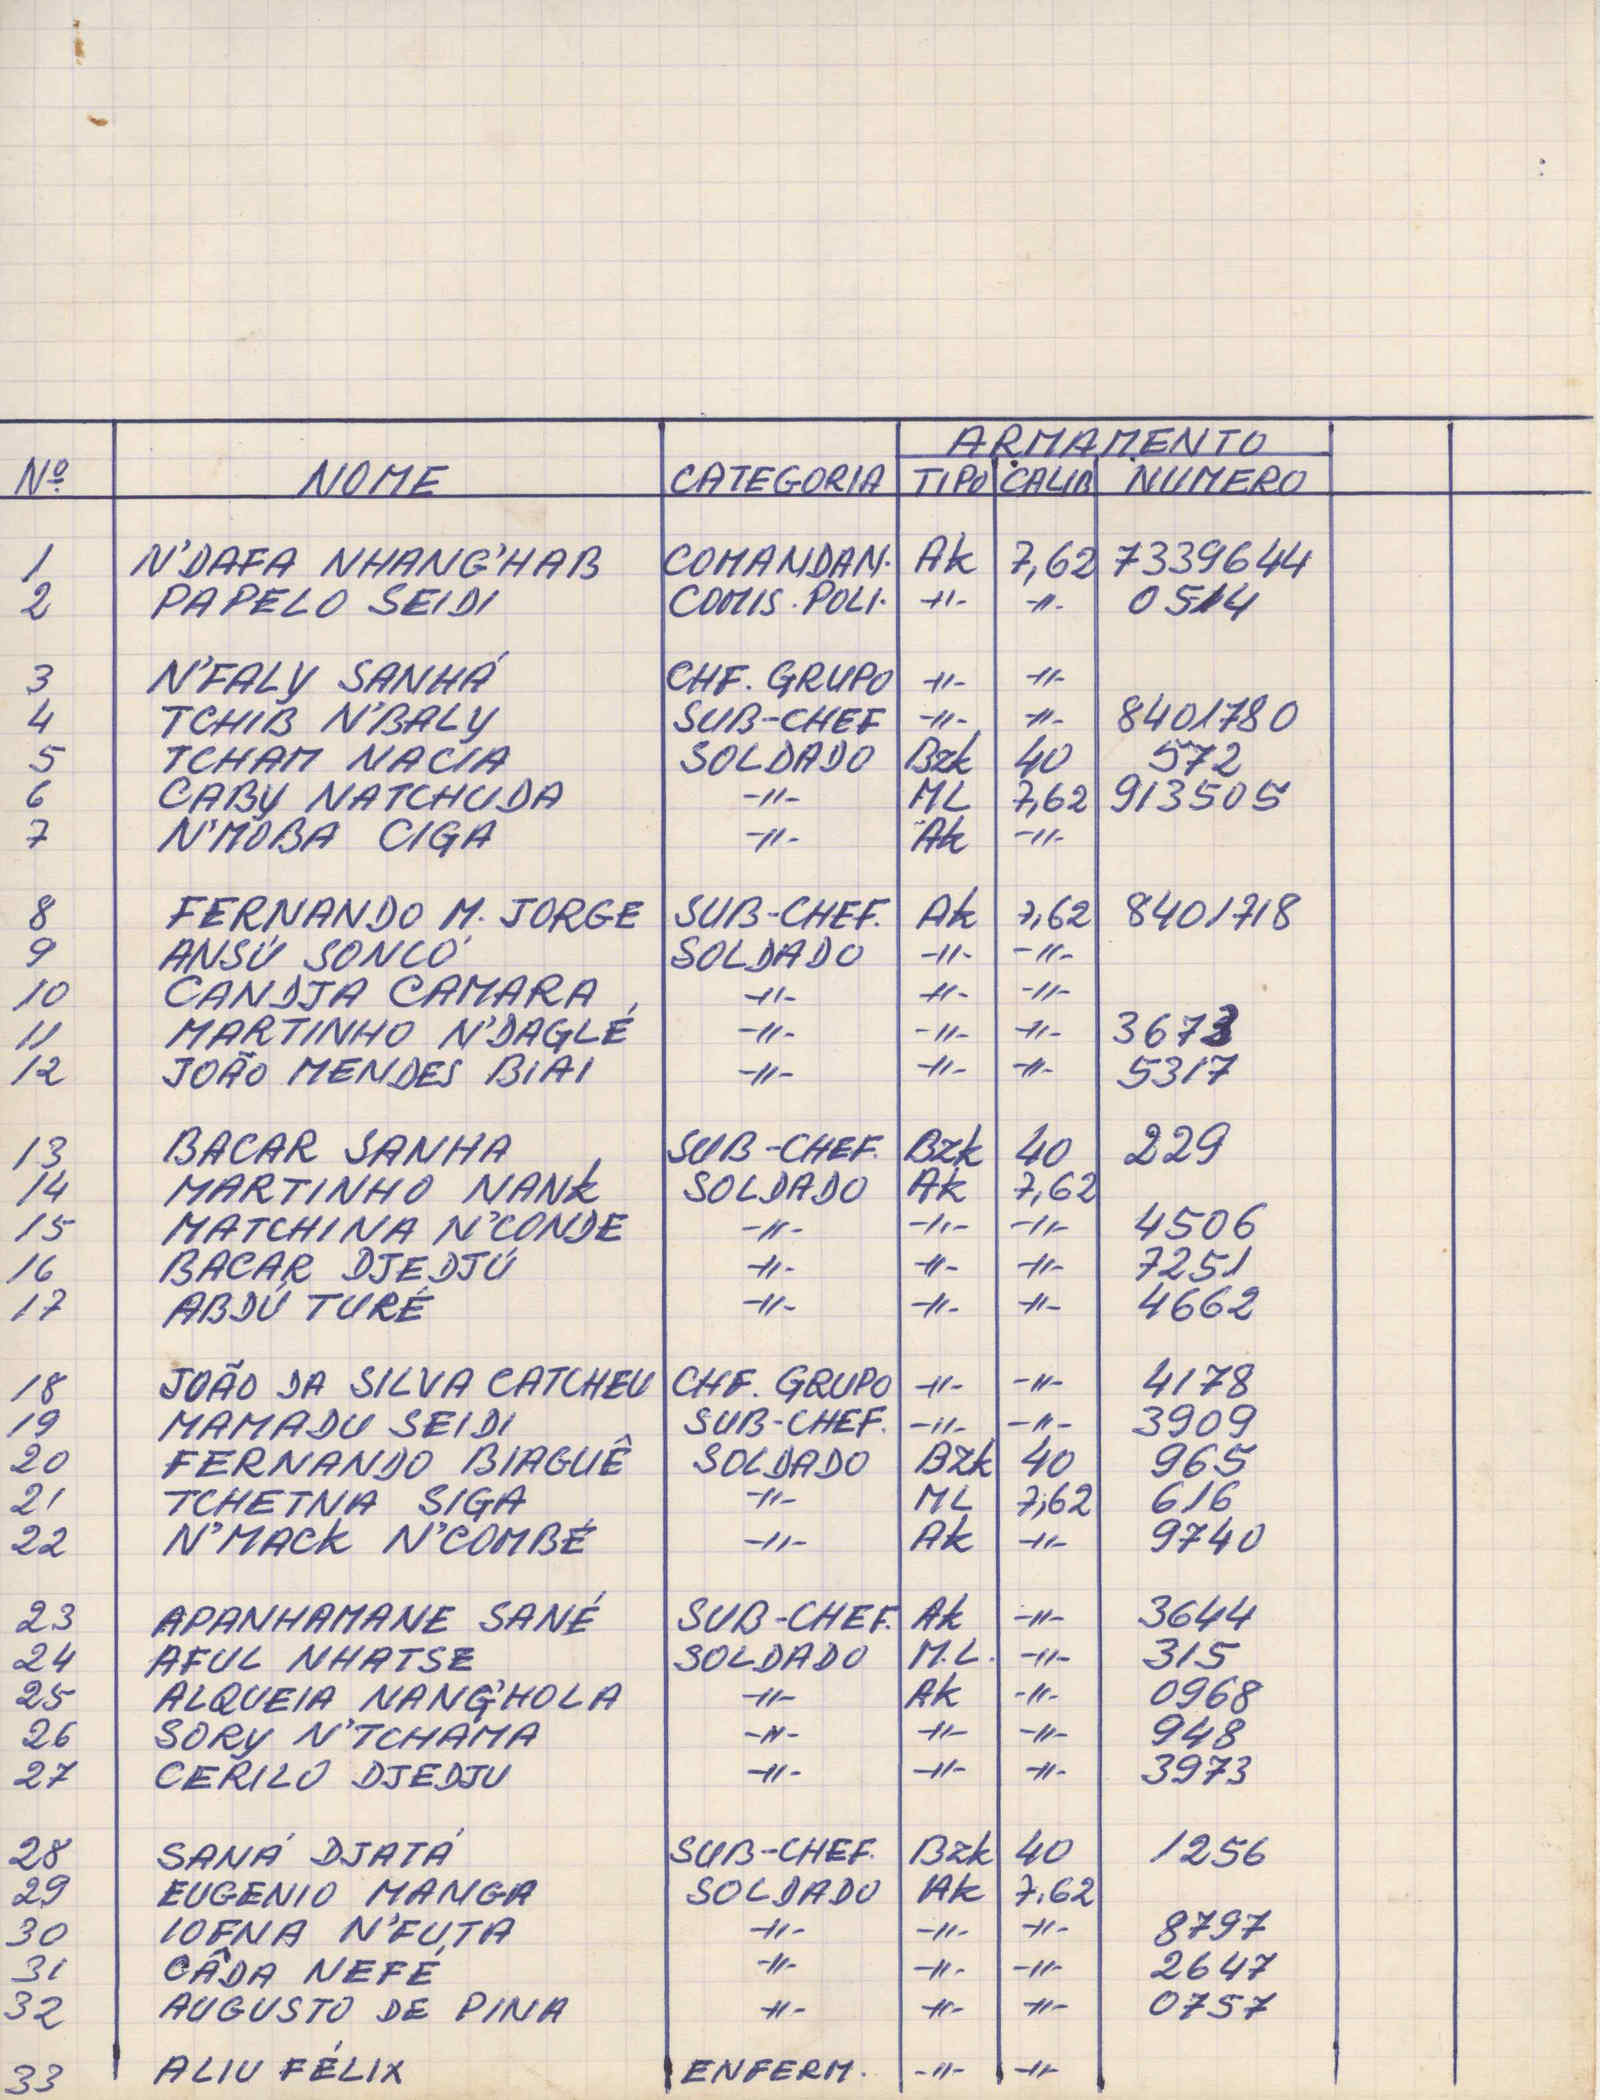 ARMAMENTO
Nº NOME CATEGORIA TIPO CALIB NUMERO
1 N'DAFA NHANG'HAB COMANDAN. Ak 7,62 7339644
2 PAPELO SEIDI COMIS. POLI. -"- -"- 0514
3 N'FALY SANHÁ CHF. GRUPO -"- -"-
4 TCHIB N'BALY SUB-CHEF -"- -"- 8401780
5 TCHAM NACIA SOLDADO Bzk 40 572
6 CABY NATCHUDA -"- ML 7,62 913505
7 N'MOBA CIGA -"- Ak -"-
8 FERNANDO M. JORGE SUB-CHEF. Ak 7,62 8401718
9 ANSÚ SONCÓ SOLDADO -"- -"-
10 CANDJA CAMARA -"- -"- -"-
11 MARTINHO N'DAGLÉ -"- -"- -"- 3673
12 JOÃO MENDES BIAI -"- -"- -"- 5317
13 BACAR SANHA SUB-CHEF. Bzk 40 229
14 MARTINHO NANK SOLDADO Ak 7,62
15 MATCHINA N'CONDE -"- -"- -"- 4506
16 BACAR DJEDJÚ -"- -"- -"- 7251
17 ABDÚ TURÉ -"- -"- -"- 4662
18 JOÃO DA SILVA CATCHEU CHF. GRUPO -"- -"- 4178
19 MAMADU SEIDI SUB-CHEF. -"- -"- 3909
20 FERNANDO BIAGUÊ SOLDADO Bzk 40 965
21 TCHETNA SIGA -"- ML 7,62 616
22 N'MACK N'COMBÉ -"- Ak -"- 9740
23 APANHAMANE SANÉ SUB-CHEF. Ak -"- 3644
24 AFUL NHATSE SOLDADO M.L. -"- 315
25 ALQUEIA NANG'HOLA -"- Ak -"- 0968
26 SORY N'TCHAMA -"- -"- -"- 948
27 CERILO DJEDJU -"- -"- -"- 3973
28 SANÁ DJATÁ SUB-CHEF. Bzk 40 1256
29 EUGENIO MANGA SOLDADO Ak 7.62
30 IOFNA N'FUTA -"- -"- -"- 8797
31 CÂDA NEFÉ -"- -"- -"- 2647
32 AUGUSTO DE PINA -"- -"- -"- 0757
33 ALIU FÉLIX ENFERM. -"- -"-